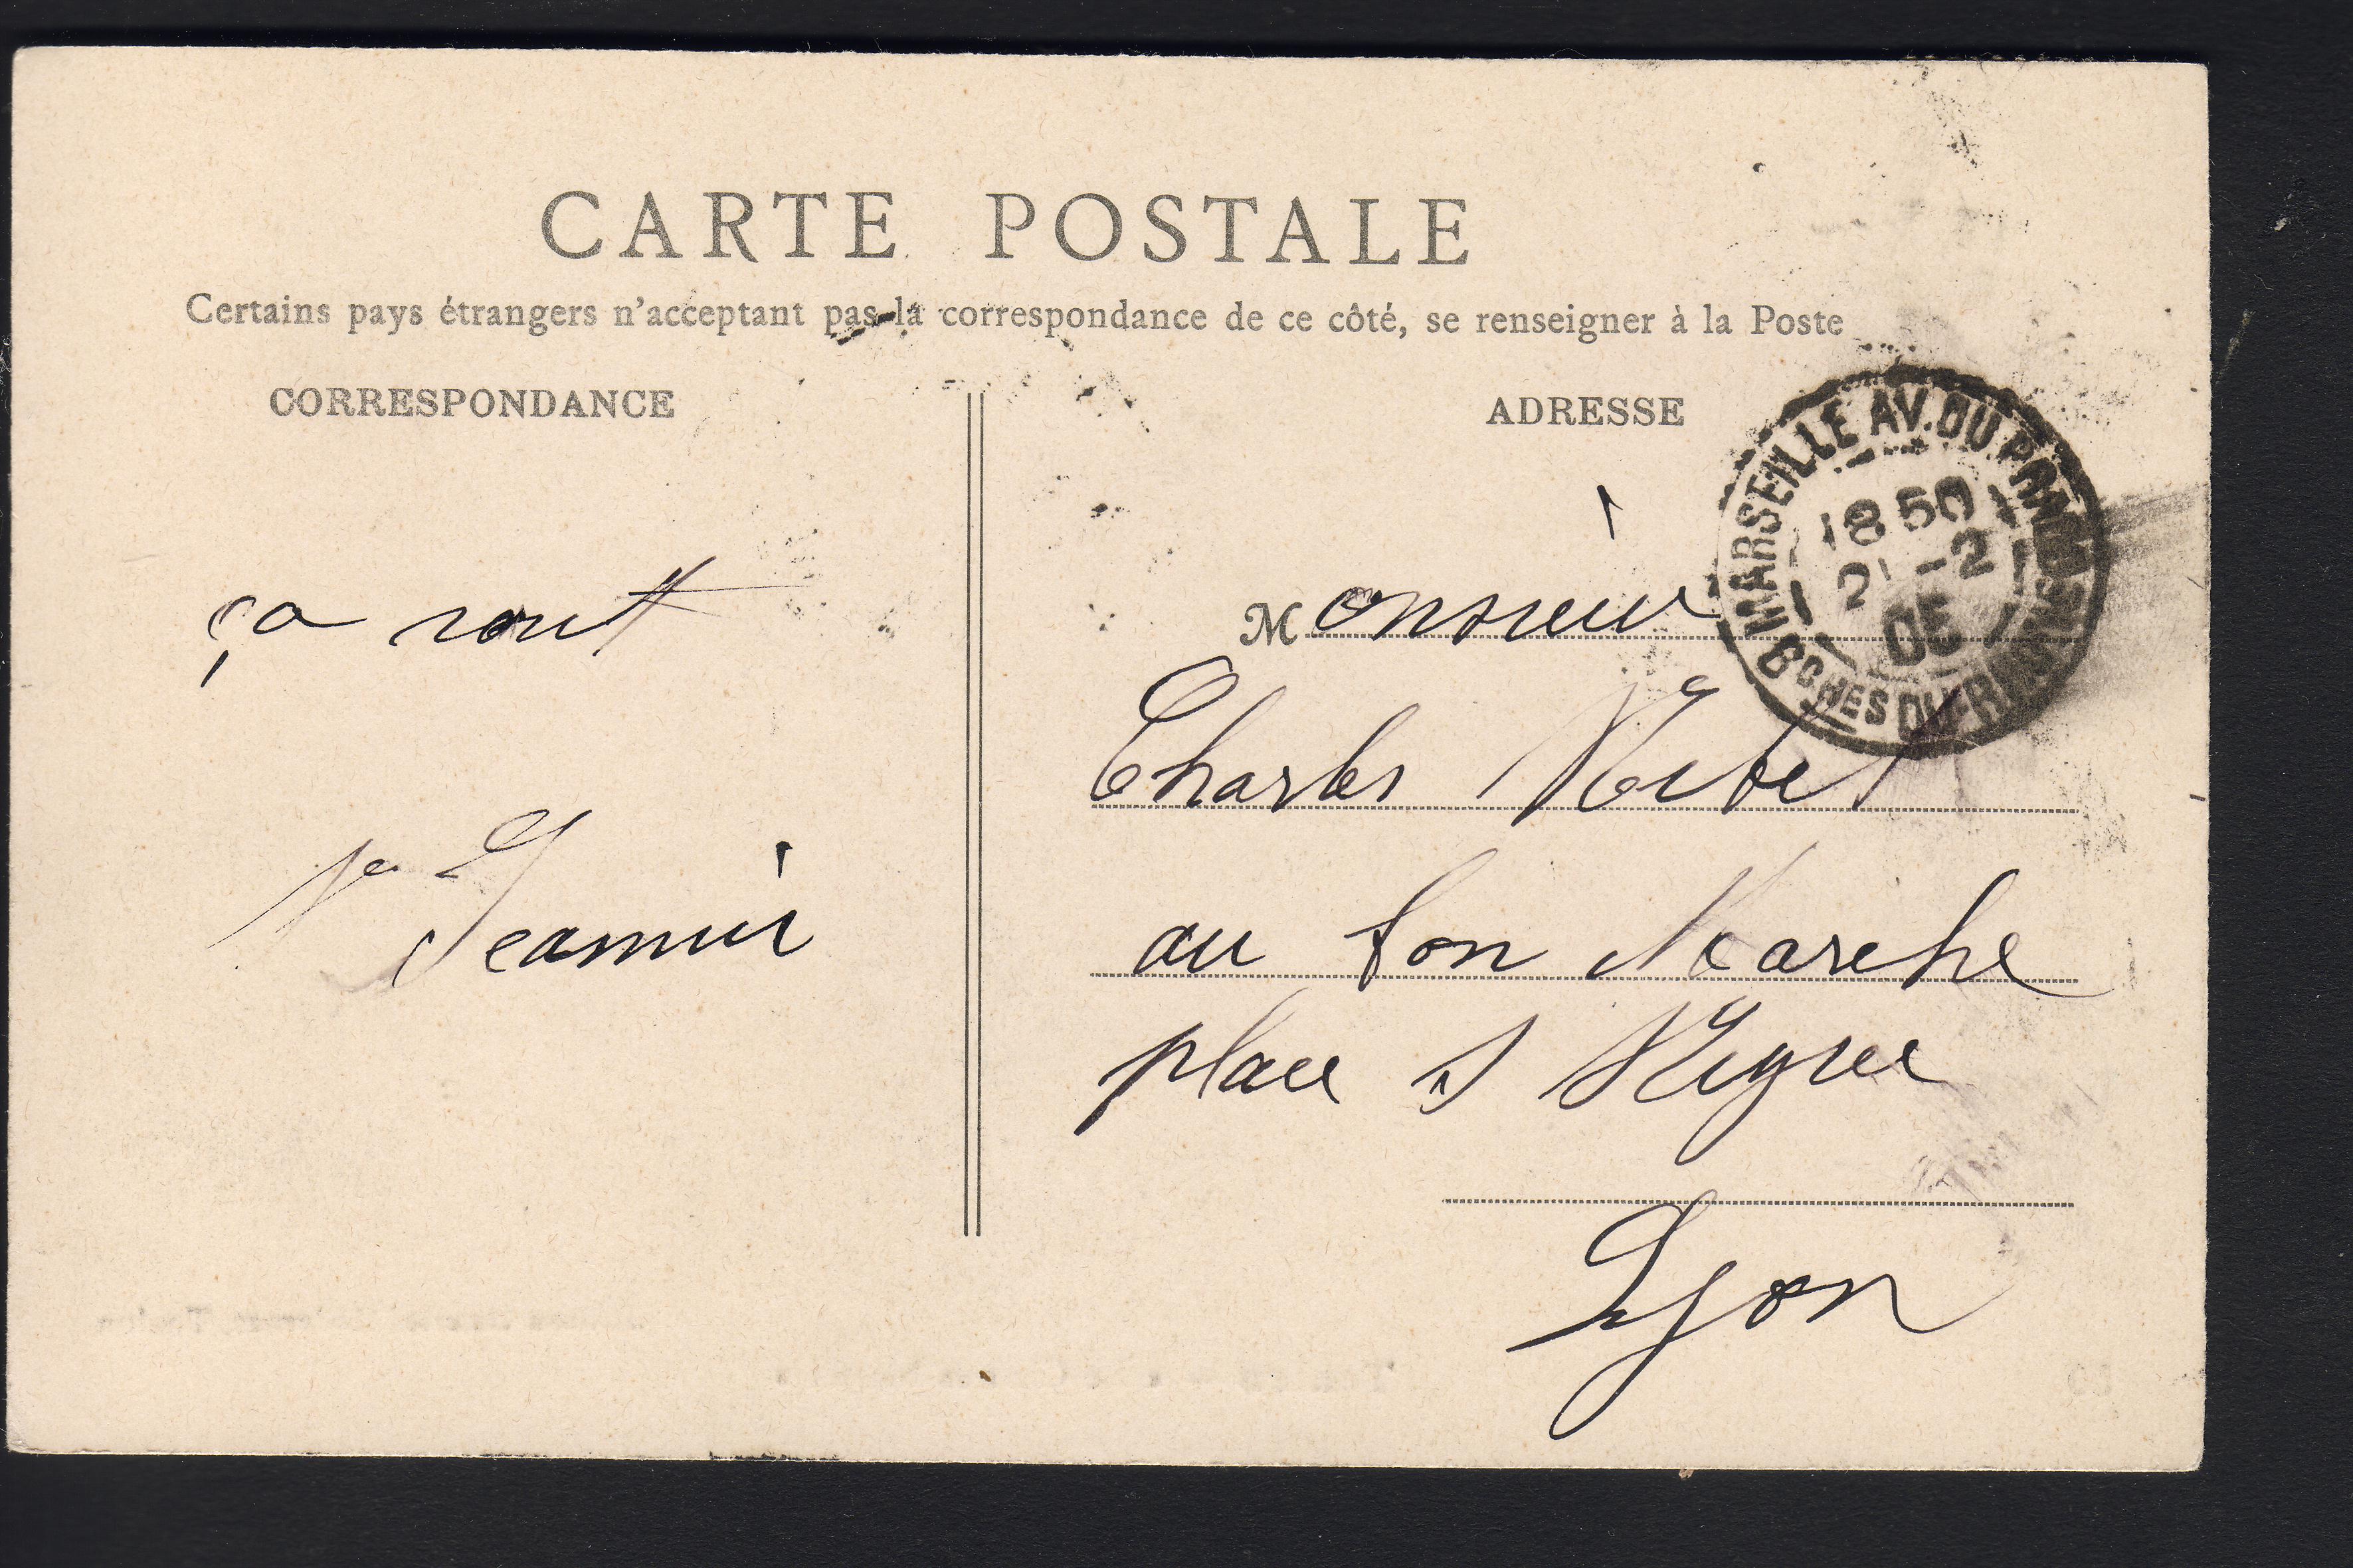 CARTE POSTALE
Certains pays étrangers n'acceptant pas la correspondance de ce côté, se renseigner à la Poste
CORRESPONDANCE
ADRESSE
MARSEILLE AV. DU PRADO
18 50
2 -2
05
Bches DU RHONE
ça
Monsieur
Charles
au bon Marche
place S
Lyon